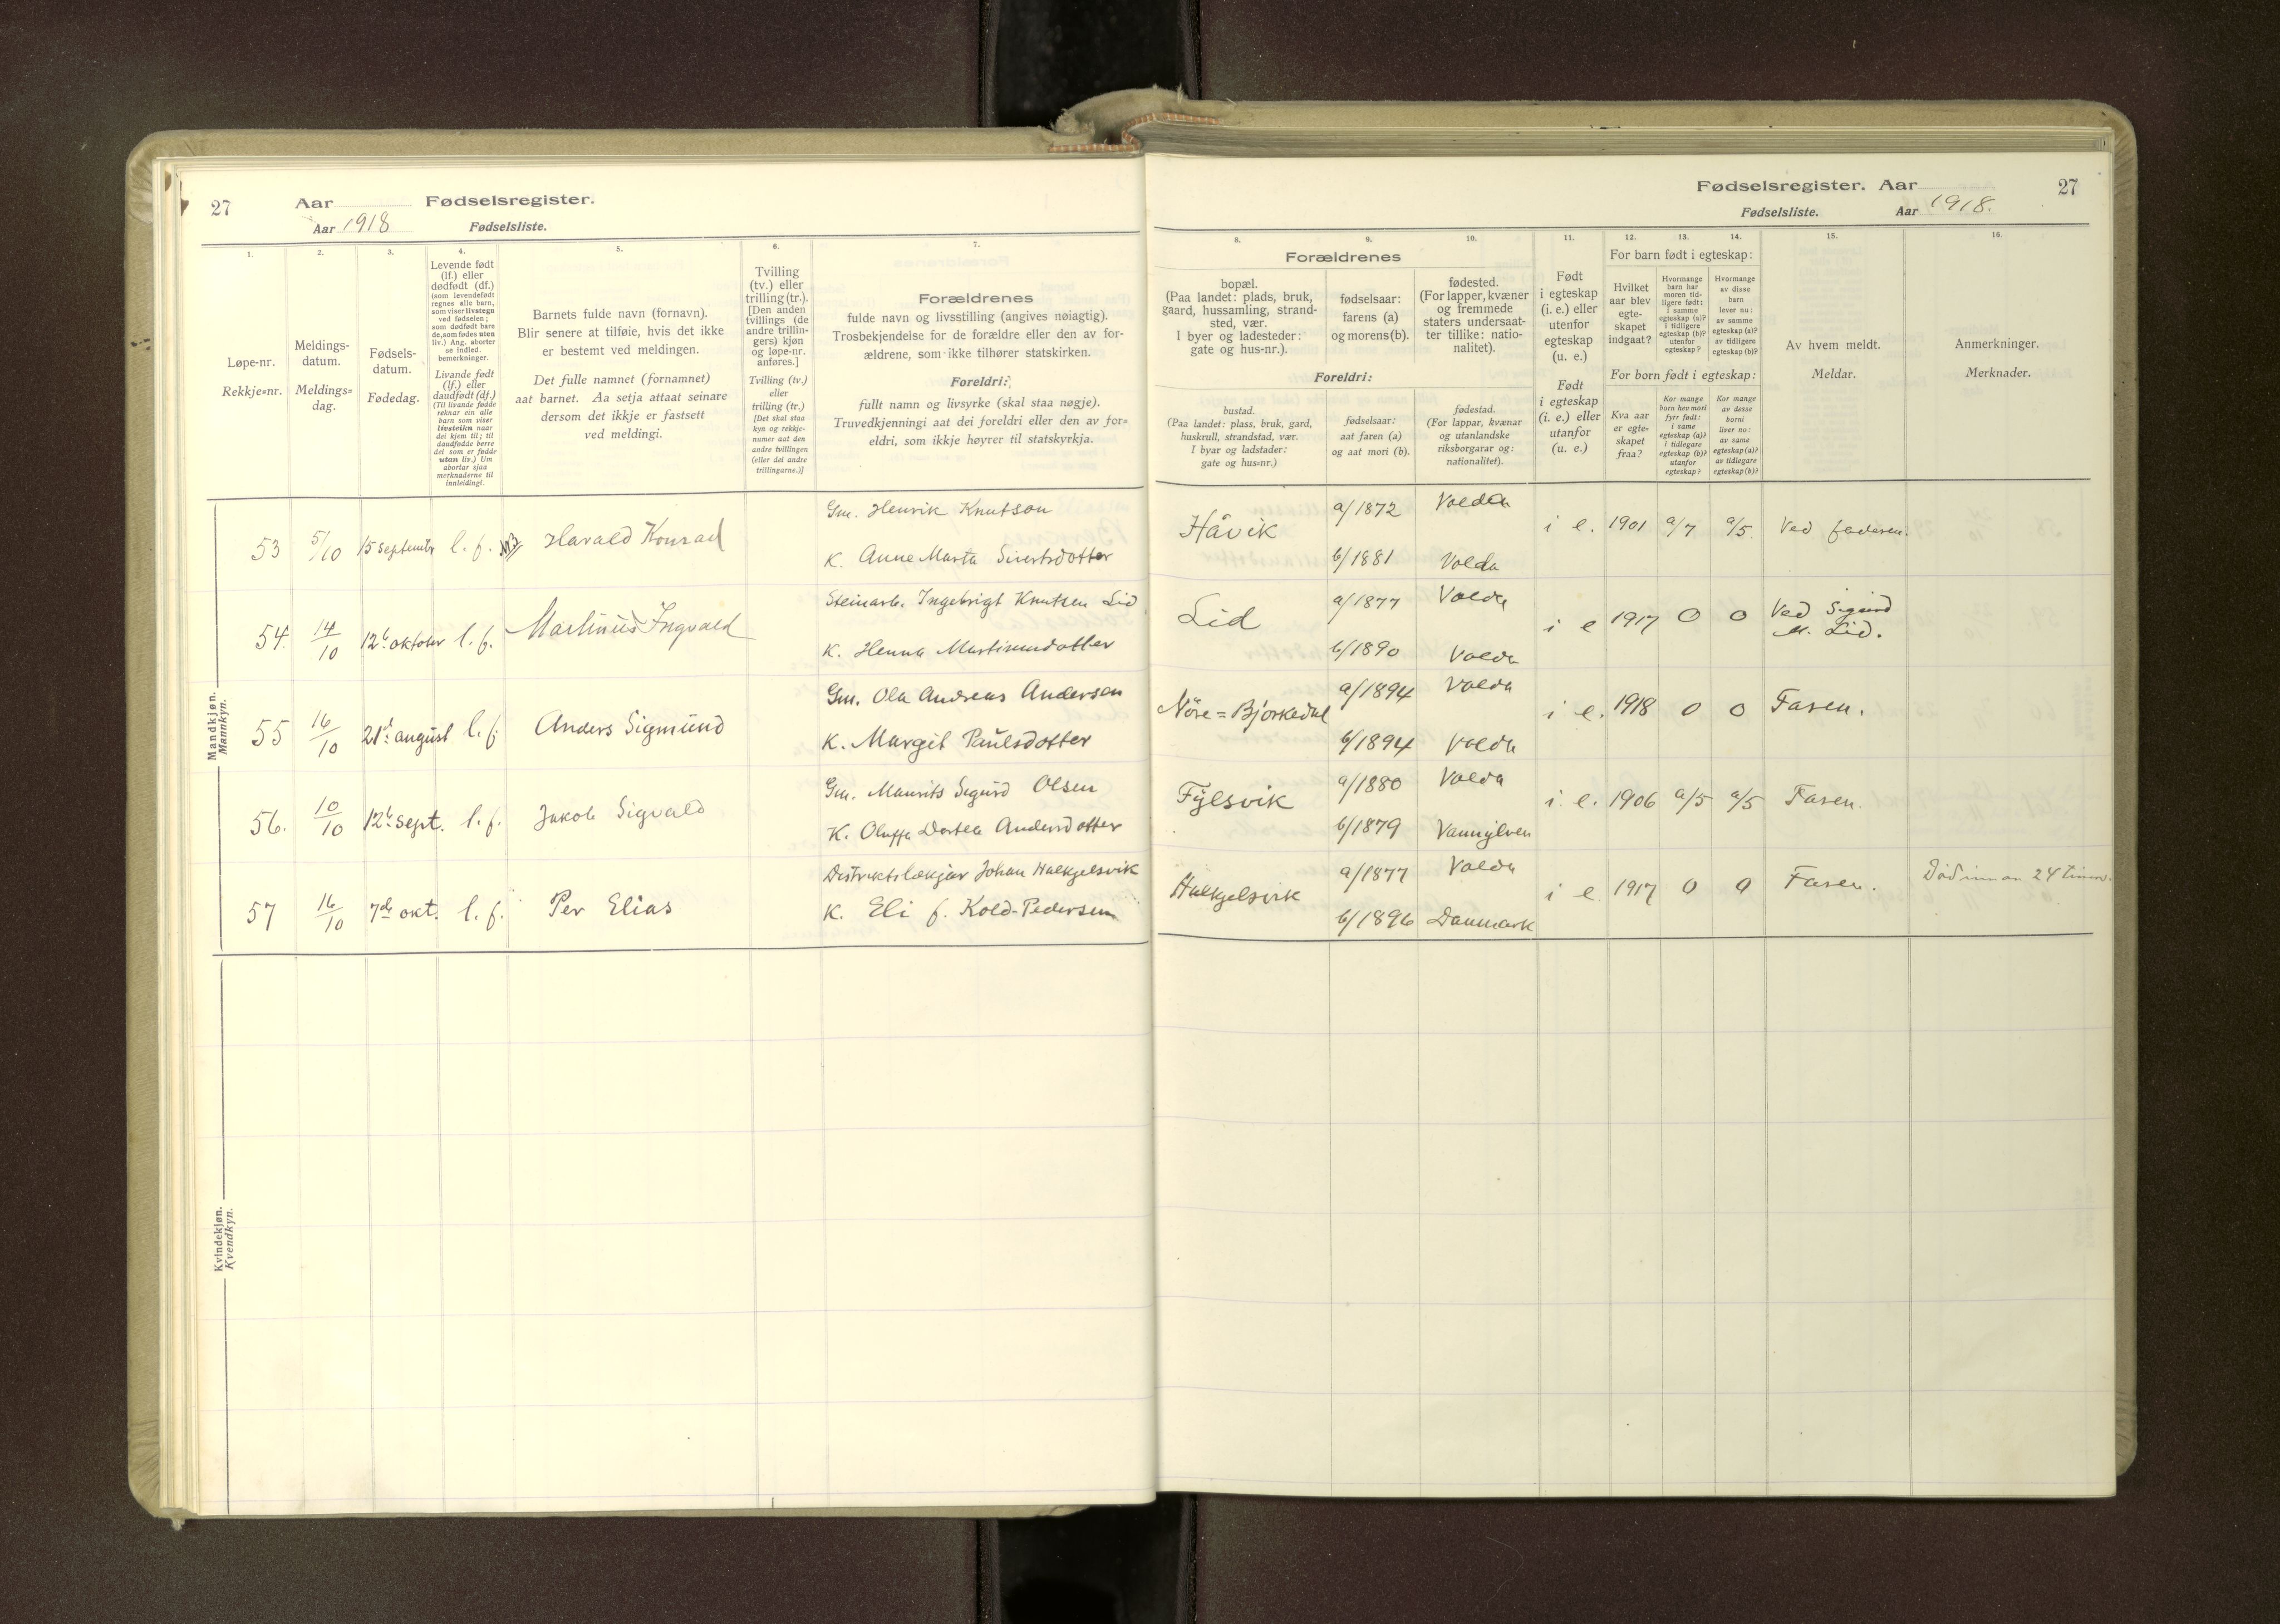 27 Aar Fødselsregister.
Aar 1918 Fødselsliste.
1.
Løpe-nr.
Rekkje=nr.
2.
Meldings-
datum.
Meldings=
dag.
3.
Fødsels-
datum.
Fødedag.
4.
Levende født
(lf.) eller
dødfødt (df.)
(som levendefødt
regnes alle barn,
som viser livstegn
ved fødselen;
som dødfødt bare
de, som fødes uten
liv.) Ang. aborter
se indled.
bemerkninger.
Livande født
(lf.) eller
daudfødt (df.)
(Til livande fødde
reknar ein alle
barn som viser
livsteikn naar
dei kjem til; til
daudfødde berre
dei som er fødde
utan liv.) Um
abortar sjaa
merknaderne til
innleidingi.
5.
Barnets fulde navn (fornavn).
Blir senere at tilføie, hvis det ikke
er bestemt ved meldingen.
Det fulle namnet (fornamnet)
aat barnet. Aa setja attaat seinare
dersom det ikkje er fastsett
ved meldingi.
6.
Tvilling
(tv.) eller
trilling (tr.).
[Den anden
tvillings (de
andre trillin-
gers) kjøn
og løpe-nr.
anføres.]
Tvilling (tv.)
eller
trilling (tr.)
[Det skal staa
kyn og rekkje-
numer aat den
andre tvillingen
(eller dei andre
trillingarne.)]
7.
Forældrenes
fulde navn og livsstilling (angives nøiagtig).
Trosbekjendelse for de forældre eller den av for-
ældrene, som ikke tilhører statskirken.
Foreldri:
fullt namn og livsyrke (skal staa nøgje).
Truvedkjenningi aat dei foreldri eller den av for=
eldri, som ikkje høyrer til statskyrkja.
Mandkjøn.
Mannkyn.
53 5/10 15 septembr l. f. NB Harald Konrad
Gm. Henrik Knutson
K. Anne Marta Sivertsdotter
54. 14/10 12te oktober l. f. Martinus Ingvald
Steinarb. Ingebrigt Knutsen Lid
K. Henna Martinusdotter
55 16/10 21de august l. f. Anders Sigmund
Gm. Ola Andreas Andersen
K. Margit Paulsdotter
56. 10/10 12te sept. l. f. Jakob Sigvald
Gm. Maurits Sigurd Olsen
K. Oluffa Dortea Andersdotter
57 16/10 7de okt. l. f. Per Elias
Distriktslækjar Johan Halkjelsvik
K. Eli f. Kold-Pedersen
Kvindekjøn.
Kvendkyn.
Fødselsregister. Aar 27
Fødselsliste. Aar 1918.
8.
Forældrenes
bopæl.
(Paa landet: plads, bruk,
gaard, hussamling, strand-
sted, vær.
I byer og ladesteder:
gate og hus-nr.).
9.
fødselsaar:
farens (a)
og morens (b).
10.
fødested.
(For lapper, kvæner
og fremmede
staters undersaat-
ter tillike: natio-
nalitet).
Foreldri:
bustad.
(Paa landet: plass, bruk, gard,
huskrull, strandstad, vær.
I byar og ladstader:
gate og hus=nr.)
fødselsaar:
aat faren (a)
og aat mori (b).
fødestad.
(For lappar, kvænar
og utanlandske
riksborgarar og:
nationalitet).
11.
Født
i egteskap
(i. e.) eller
utenfor
egteskap
(u. e.)
Født
i egteskap
(i. e.) eller
utanfor
(u. e.)
12. 13. 14.
For barn født i egteskap:
Hvilket
aar blev
egte-
skapet
indgaat?
Hvormange
barn har
moren tid-
ligere født:
i samme
egteskap (a)?
i tidligere
egteskap (b)?
utenfor
egteskap?
Hvormange
av disse
barn
lever nu:
av samme
egteskap (a)?
av tidligere
egteskap (b)?
For born født i egteskap:
Kva aar
er egte-
skapet
fraa?
Kor mange
born hev mori
fyrr født:
i same
egteskap (a)?
i tidlegare
egteskap (b)?
utanfor
egteskap?
Kor mange
av desse
borni
liver no:
av same
egteskap (a)?
av tidlegare
egteskap (b)?
15.
Av hvem meldt.
Meldar.
16.
Anmerkninger.
Merknader.
Håvik a/1872 Volda i e. 1901 a/7 a/5 Ved faderen.
b/1881 Volda
Lid a/1877 Volda i e 1917 0 0 Ved Sigurd
M. Lid.
b/1890 Volda
Nöre=Bjørkedal a/1894 Volda i e. 1918 0 0 Faren.
b/1894 Volda
Fylsvik a/1880 Volda i. e. 1906 a/5 a/5 Faren.
b/1879 Vannylven
Halkjelsvik a/1877 Volda i e 1917 0 0 Faren. Död innan 24 timar.
b/1896 Danmark